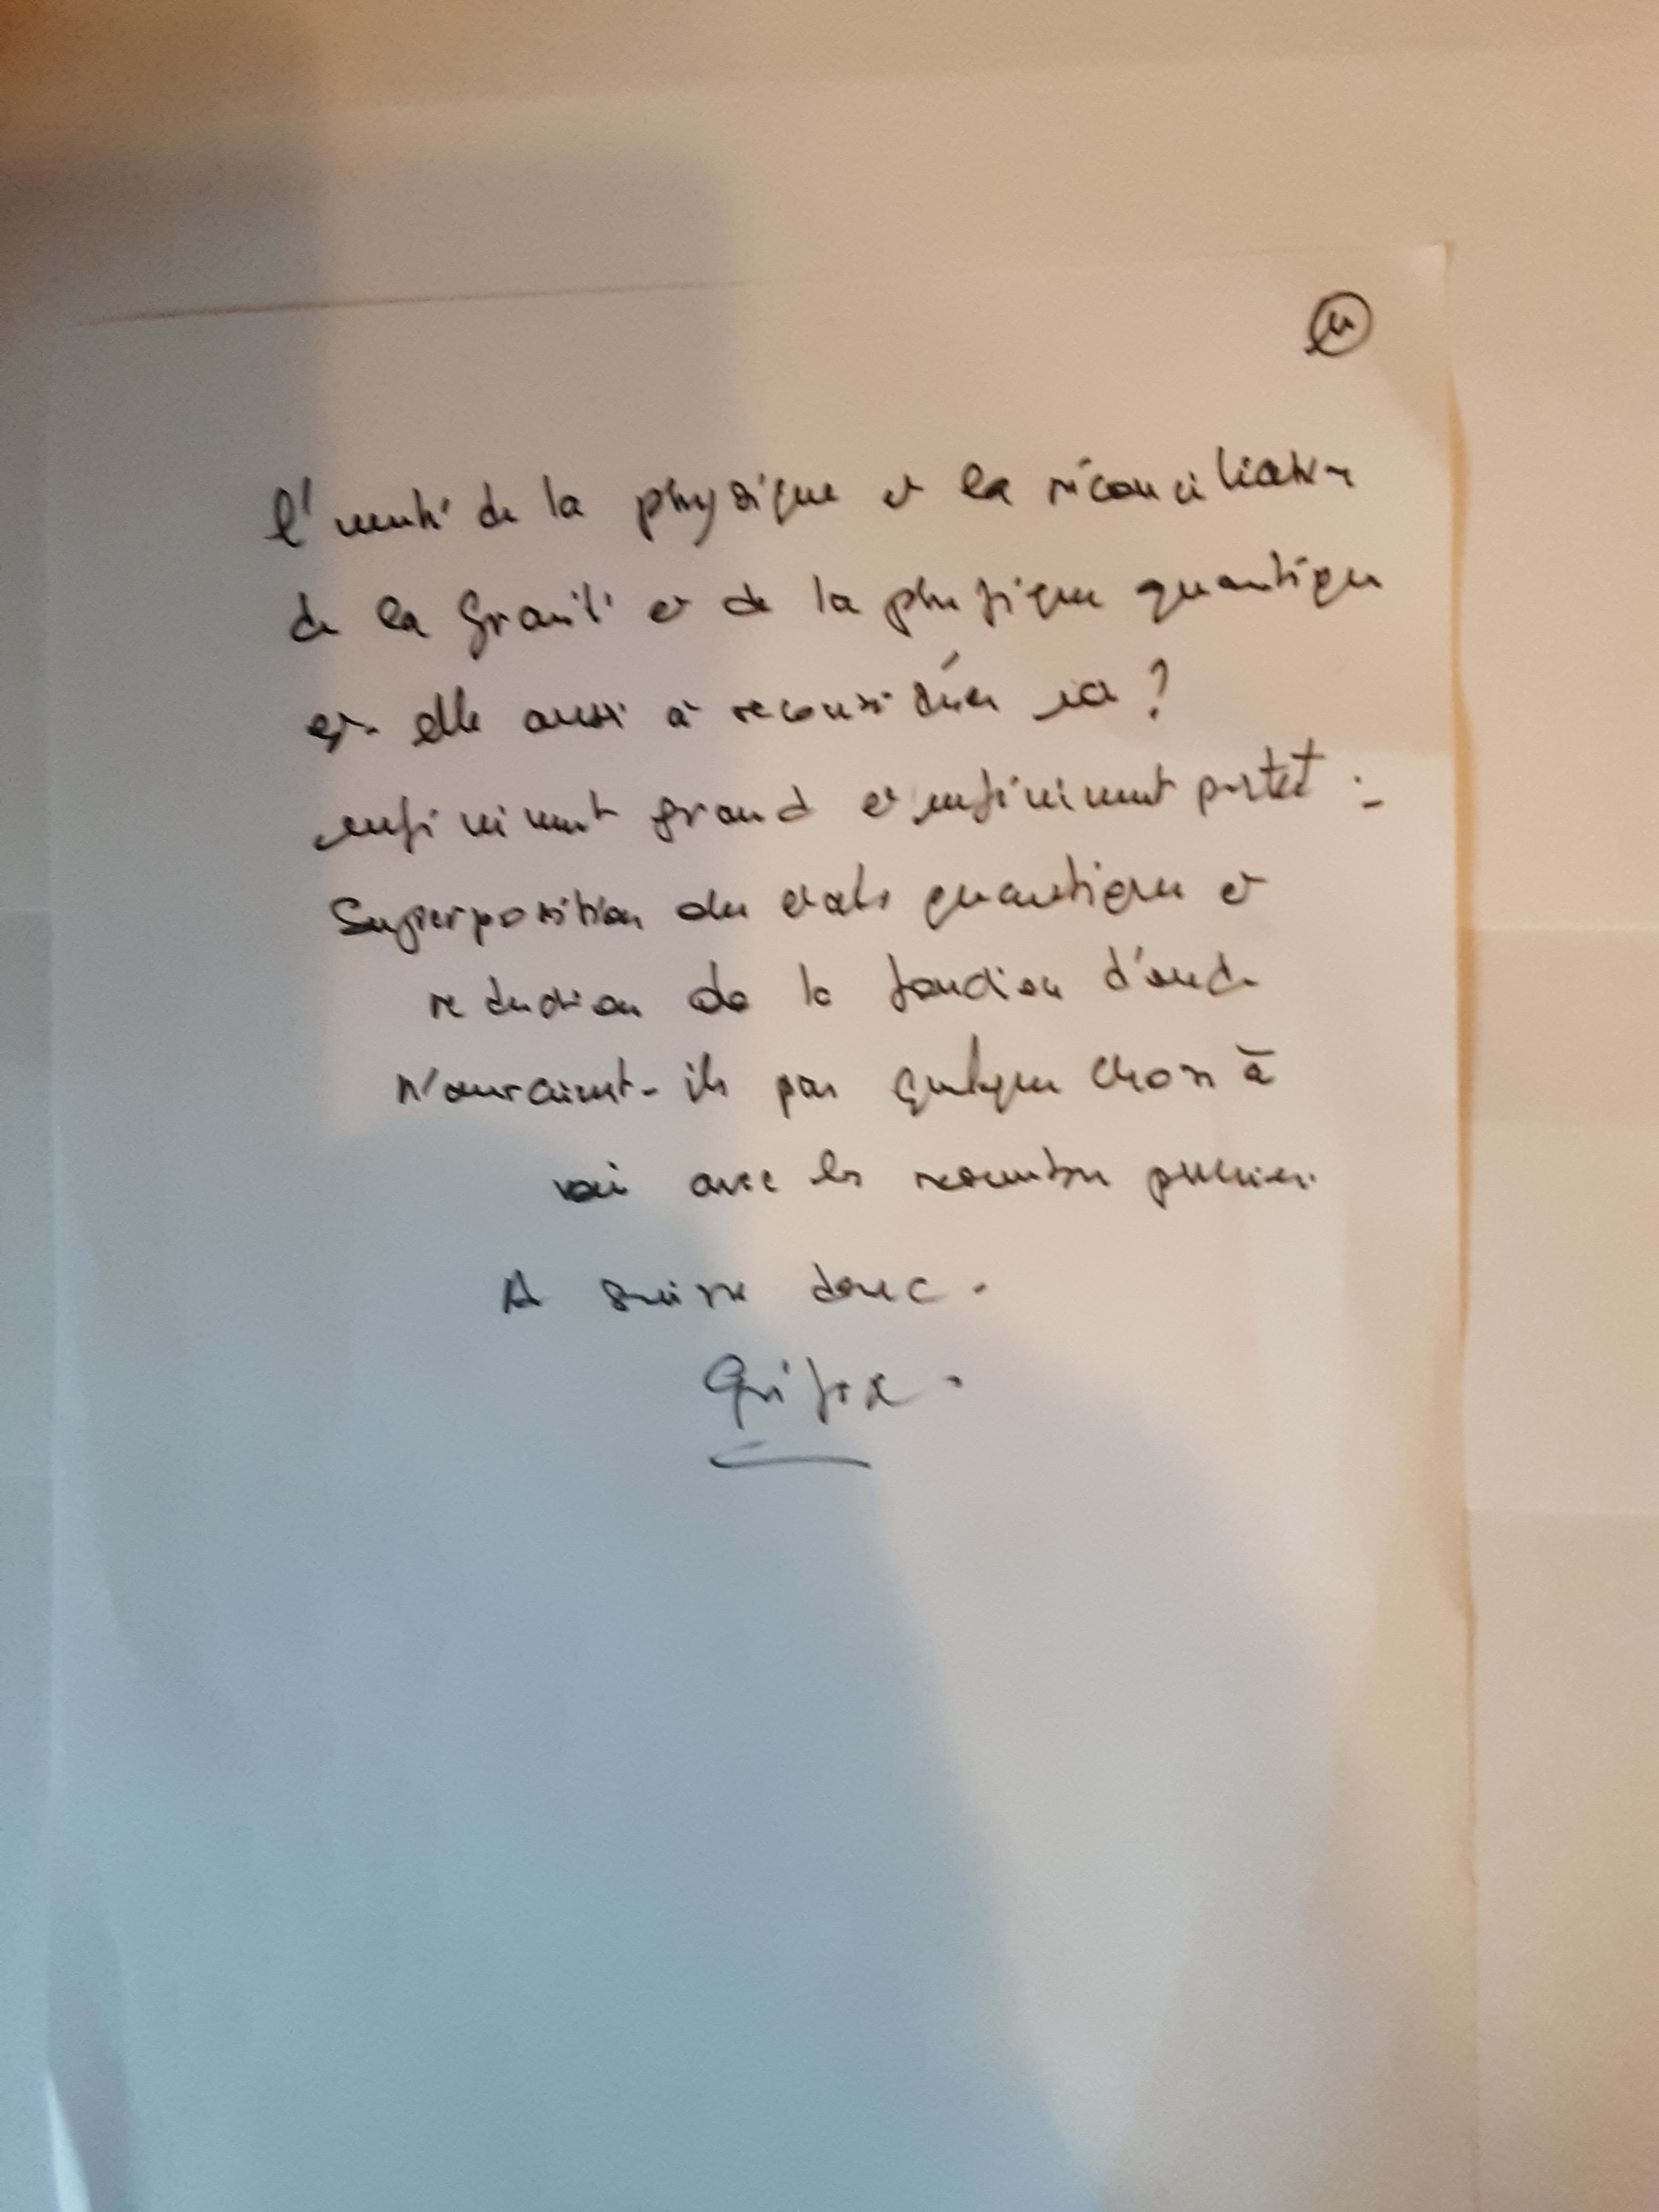 l'unité de la physique et la réconciliation
de la gravité et de la physique quantique
est-elle aussi à reconsidérer ici ?
infiniment grand et infiniment petit :
Superposition des états quantiques et
réduction de la fonction d'onde
n'auraient-ils pas quelque chose à
voir avec les nombres premiers.
A suivre donc.